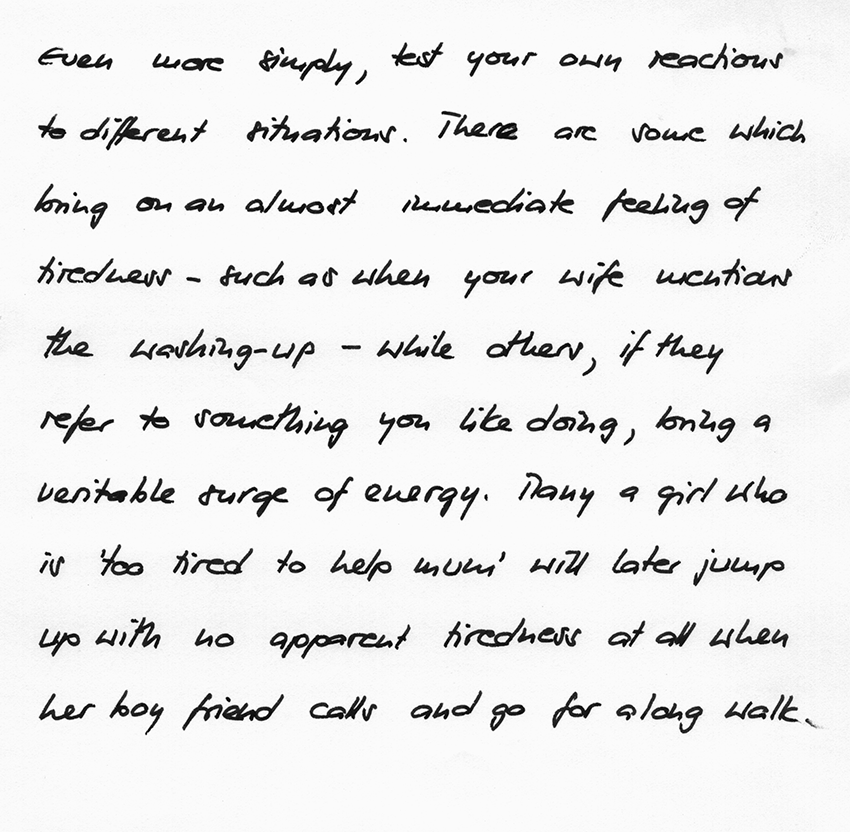 Even more simply, test your own reactions
to different situations. There are some which
bring on an almost immediate feeling of
tiredness - such as when your wife mentions
the washing-up - while others, if they
refer to something you like doing, bring a
veritable surge of energy. Many a girl who
is 'too tired to help mum' will later jump
up with no apparent tiredness at all when
her boy friend calls and go for a long walk.